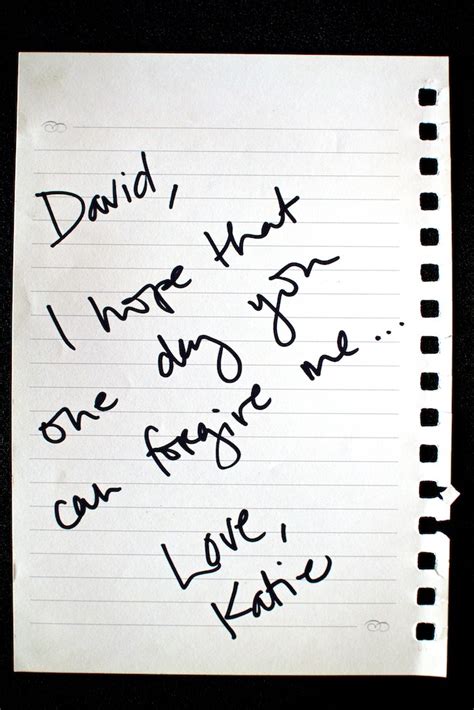 David,
I hope that
one day you
can forgive me...
Love,
Katie